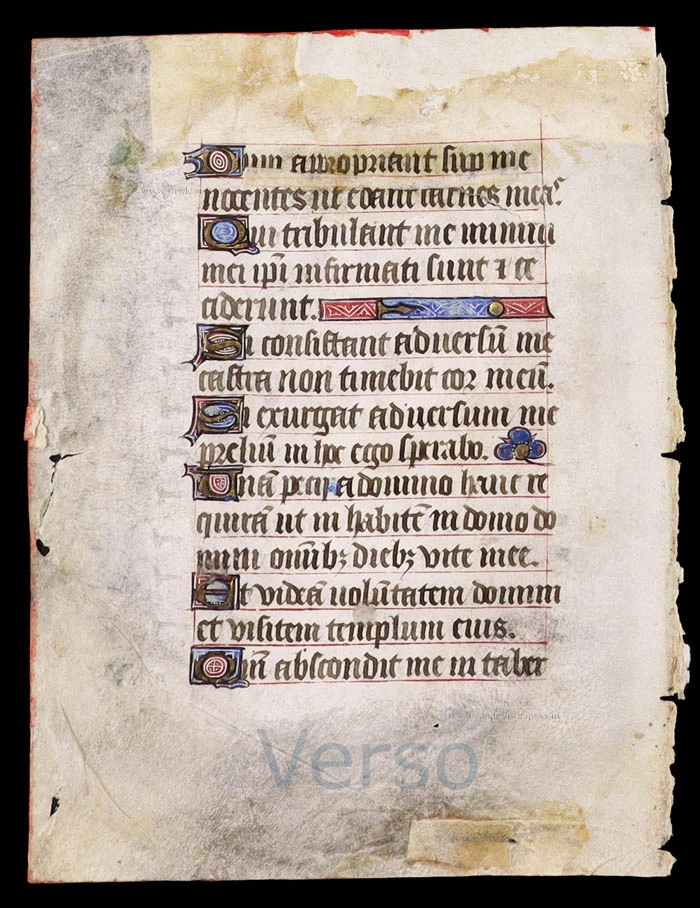 Dum appropriant sup me
nocentes ut edant carnes meas
Qui tribulant me inimici
mei ipi infirmati sunt ⁊ ce
ciderunt.
Si consistant adversū me
castra non timebit cor meū.
Si exurgat adversum me
preliū in hoc ego sperabo.
Unā pecii a domino hanc re
quirā ut in habitē in domo do
mini omībꝫ diebꝫ vite mee.
Et videā volūtatem domini
et visitem templum eius.
Qm̄ abscondit me in taber
Verso